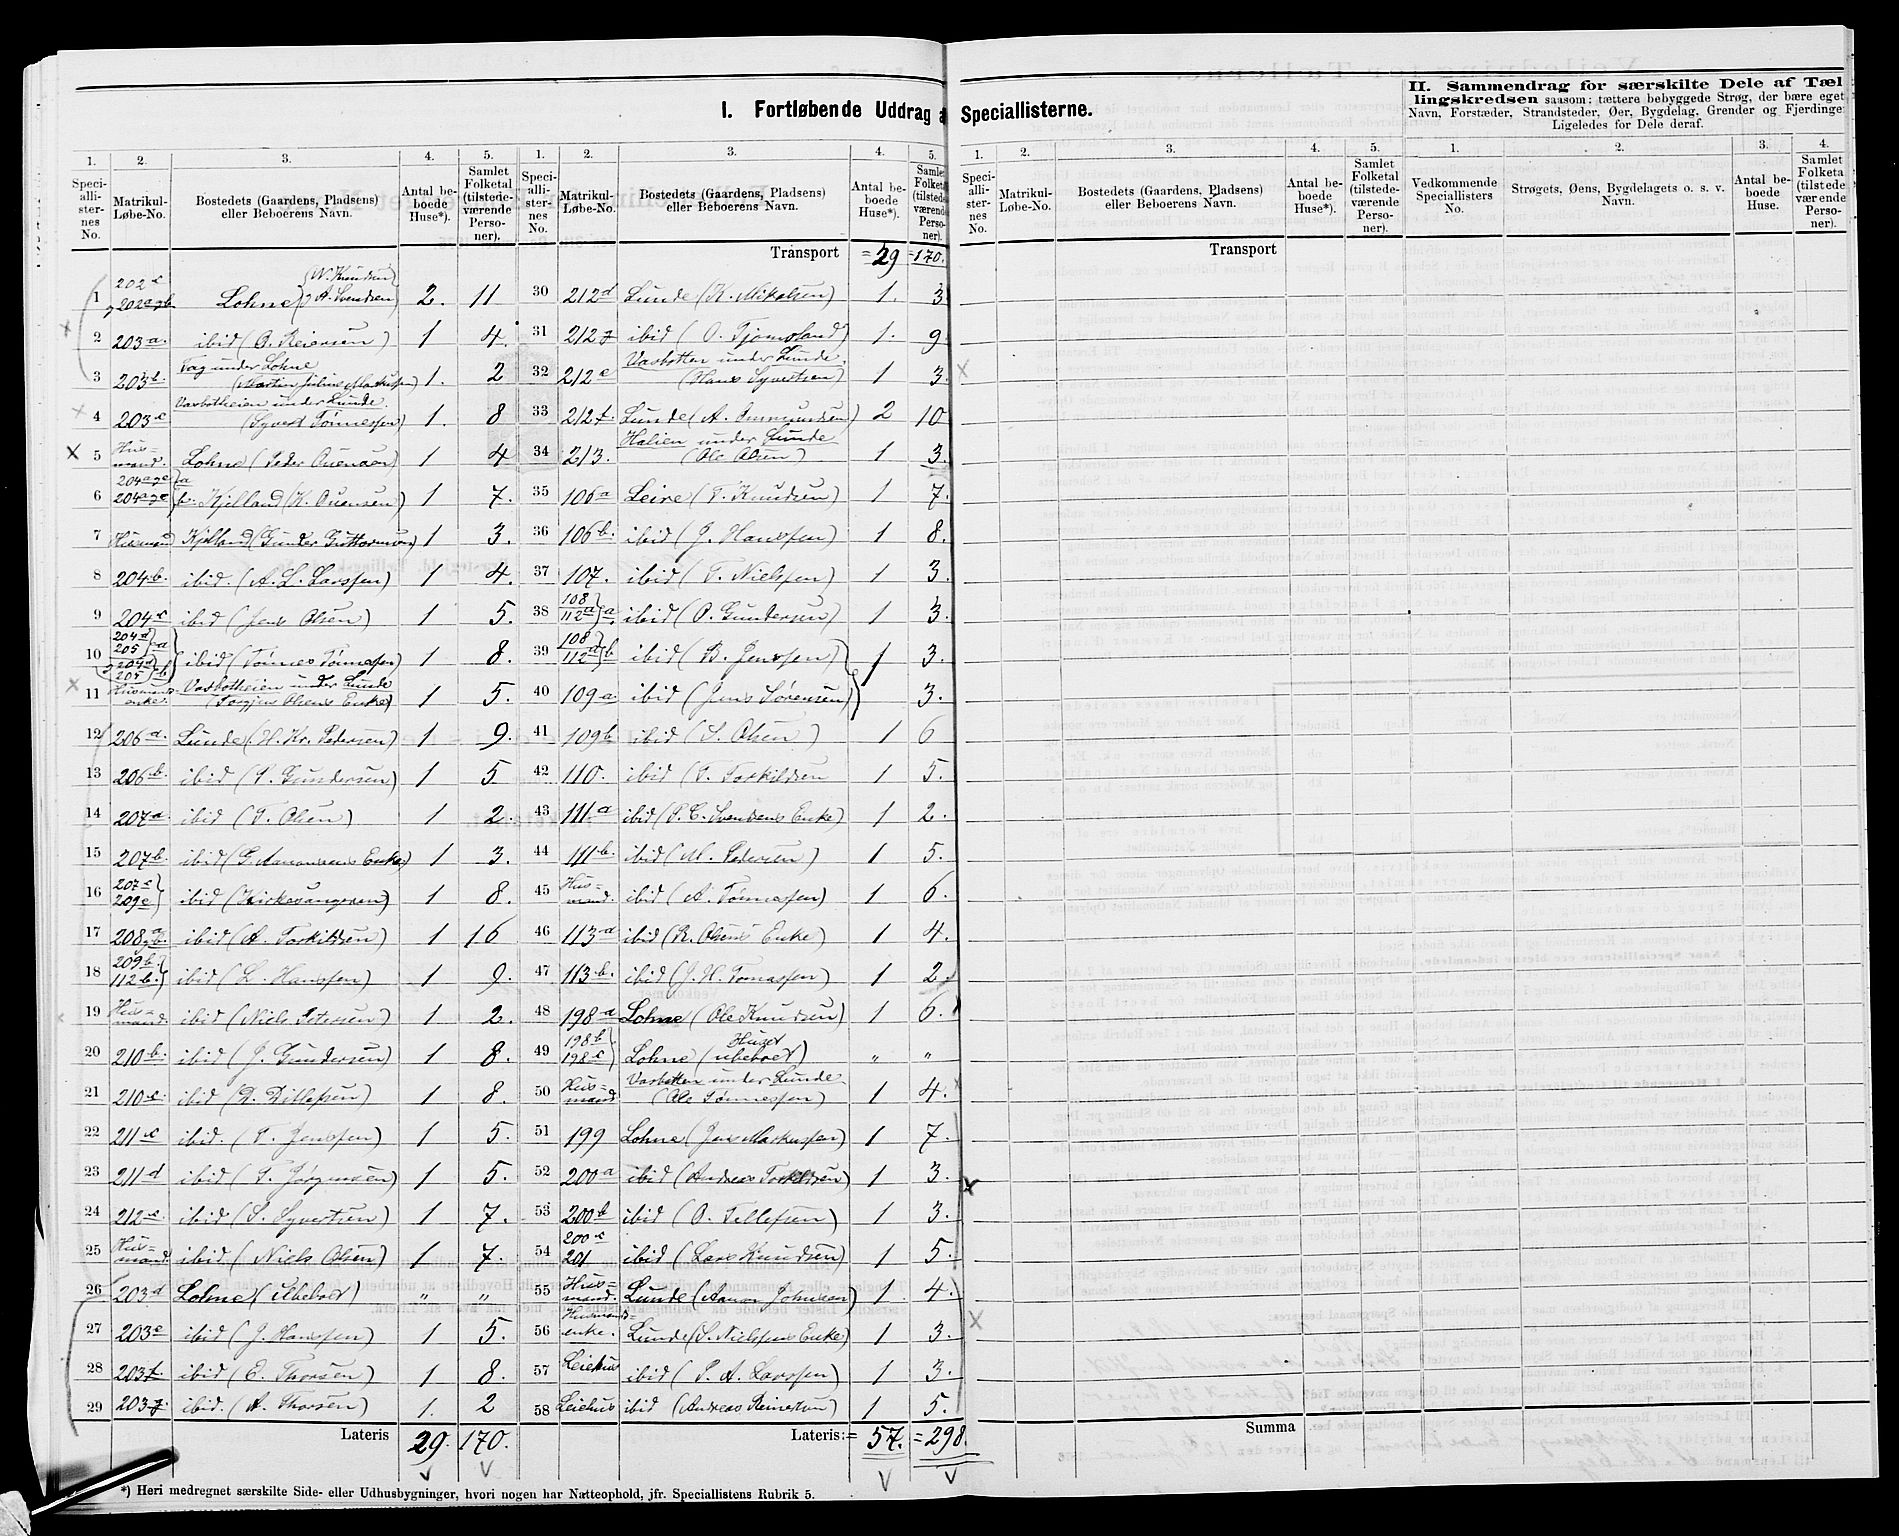 I. Fortløbende Uddrag a
Speciallisterne.
II. Sammendrag for særskilte Dele af Tæl
lingskredsen saasom: tættere bebyggede Strøg, der bære eget
Navn, Forstæder, Strandsteder, Øer, Bygdelag, Grender og Fjerdinge
Ligeledes for Dele deraf.
1. 2. 3. 4. 5. 1. 2. 3. 4. 5. 1. 2. 3. 4. 5. 1. 2. 3. 4.
Speci-
alli-
ster-
nes
No.
Matrikul-
Løbe-No.
Bostedets (Gaardens, Pladsens)
eller Beboerens Navn.
Antal be-
boede
Huse*).
Samlet
Folketal
(tilstede-
værende
Perso-
ner).
Speci-
alli-
ster-
nes
No.
Matrikul-
Løbe-No.
Bostedets (Gaardens, Pladsens)
eller Beboerens Navn.
Antal be-
boede
Huse*).
Samlet
Folketal
(tilstede-
værende
Perso-
ner).
Speci-
alli-
ster-
nes
No.
Matrikul-
Løbe-No.
Bostedets (Gaardens, Pladsens)
eller Beboerens Navn.
Antal be-
boede
Huse*).
Samlet
Folketal
(tilstede-
værende
Perso-
ner).
Vedkommende
Speciallisters
No.
Strøgets, Øens, Bygdelagets o. s. v.
Navn.
Antal be-
boede
Huse.
Samlet
Folketa
(tilstede
værende
Perso-
ner).
202c (N. Knudsen)
1 202a & b Lohne (A. Svendsen) 2. 11
2 203a. ibid (O. Reiersen) 1 4.
Tag under Lohne
3 203b. (Martin Julius Markussen) 1. 2
Vasbotheien under Lunde
4 203c (Syvert Tønnessen) 1. 8
5 Hus=
mand. Lohne (Peder Ouensen) 1 4
204a & c
6 204a & c } b. Kjelland (K. Ouensen) 1 7.
7 Husmand Kjelland (Gunder Guttormsen) 1 3.
8 204b. ibid. (A. L. Larssen) 1 4.
9 204c ibid (Jens Olsen) 1 5.
204d
205 } a
10 204d
205 } b ibid (Tønnes Tønnessen) 1 8.
11 Husmands-
enke. Vasbotheien under Lunde
(Torgjus Olsens Enke) 1 5.
12 206a. Lunde (H. Kr. Pedersen) 1 9.
13 206b. ibid (P. Gundersen) 1 5
14 207a ibid (T. Olsen) 1 2.
15 207b. ibid (G. Aanonsens Enke) 1 3.
16 207c
209c } ibid (Kirkesangeren) 1 8.
17 208a & b. ibid (A. Torkildsen) 1 16
18 209b.
112b. } ibid (L. Hanssen) 1 9.
19 Hus=
mand. ibid (Niels Petersen) 1 2.
20 210b. ibid (J. Gundersen) 1 8.
21 210c. ibid (D. Ditlefsen) 1 8.
22 211c ibid. (T. Jenssen) 1 5.
23 211d ibid (T. Jørgensen) 1 5.
24 212c. ibid (S. Syvertsen) 1 7.
25 Hus=
mand ibid (Niels Olsen) 1 7.
26 203d Lohne (Ubeboet) " "
27 203e ibid (J. Hanssen) 1 5.
28 203f. ibid (E. Thorsen) 1 8.
29 203g. ibid. (A. Thorsen) 1. 2
Lateris 29. 170.
Transport = 29 = 170.
30 212d Lunde (K. Mikalsen) 1. 3
31 212g ibid (O. Tjomsland) 1. 9
Vasbotten under Lunde.
32 212e (Hans Syvertsen) 1 3.
33 212f. Lunde (A. Ommundsen) 2 10
Halien under Lunde
34 213. (Ole Olsen) 1 3.
35 106a Leire (T. Knudsen) 1 7.
36 106b. ibid (J. Hanssen) 1 8.
37 107. ibid (T. Nielsen) 1 3.
38 108
112a } a. ibid (O. Gundersen) 1 3.
39 108
112a } b ibid (B. Jenssen) 1 3.
40 109a. ibid (Jens Sørensen) 3.
41 109b ibid (S. Olsen) 1 6
42 110. ibid (T. Torkildsen 1 5.
43 111a ibid (P. C. Svendsens Enke) 1 2.
44 111b. ibid (M. Pedersen) 1 5.
45 Hus=
mand. ibid (A. Tønnessen) 1 6.
46 113a ibid (R. Olsens Enke) 1 4.
47 113b. ibid (J. H. Tomassen) 1 2.
48 198a Lohne (Ole Knudsen) 1 6.
49 198b
198c } Lohne (Huset
ubeboet) " "
50 Hus=
mand Vasbotten under Lunde
(Ole Tønnessen) 1 4.
51 199 Lohne (Jens Markussen) 1 7.
52 200a ibid (Andreas Torkildsen) 1 3.
53 200b ibid (O. Tellefsen) 1 3.
54 200c
201 ibid (Lars Knudsen) 1 5.
55 Hus=
mand. Lunde (Aanon Johnsen) 1. 4.
56 Husmands=
enke. Lunde (S. Nielssens Enke) 1 3.
57 Leiehus ibid (P. A. Larssen) 1 3.
58 Leiehus ibid (Andreas Reinertsen) 1 5.
Lateris: = 57. = 298.
Transport
Summa
*) Heri medregnet særskilte Side- eller Udhusbygninger, hvori nogen har Natteophold, jfr. Speciallistens Rubrik 5.